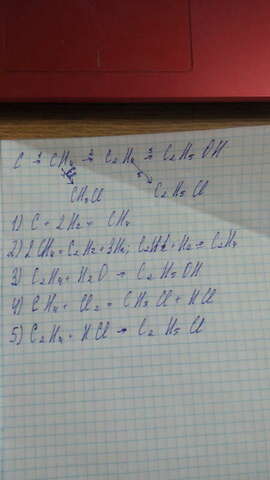 C 1→ CH4 2→ C2H4 3→ C2H5OH
4 5
CH3Cl C2H5Cl
1) C + 2H2 = CH4
2) 2CH4 = C2H2 + 3H2; C2H2 + H2 → C2H4
3) C2H4 + H2O → C2H5OH
4) CH4 + Cl2 = CH3Cl + HCl
5) C2H4 + HCl → C2H5Cl